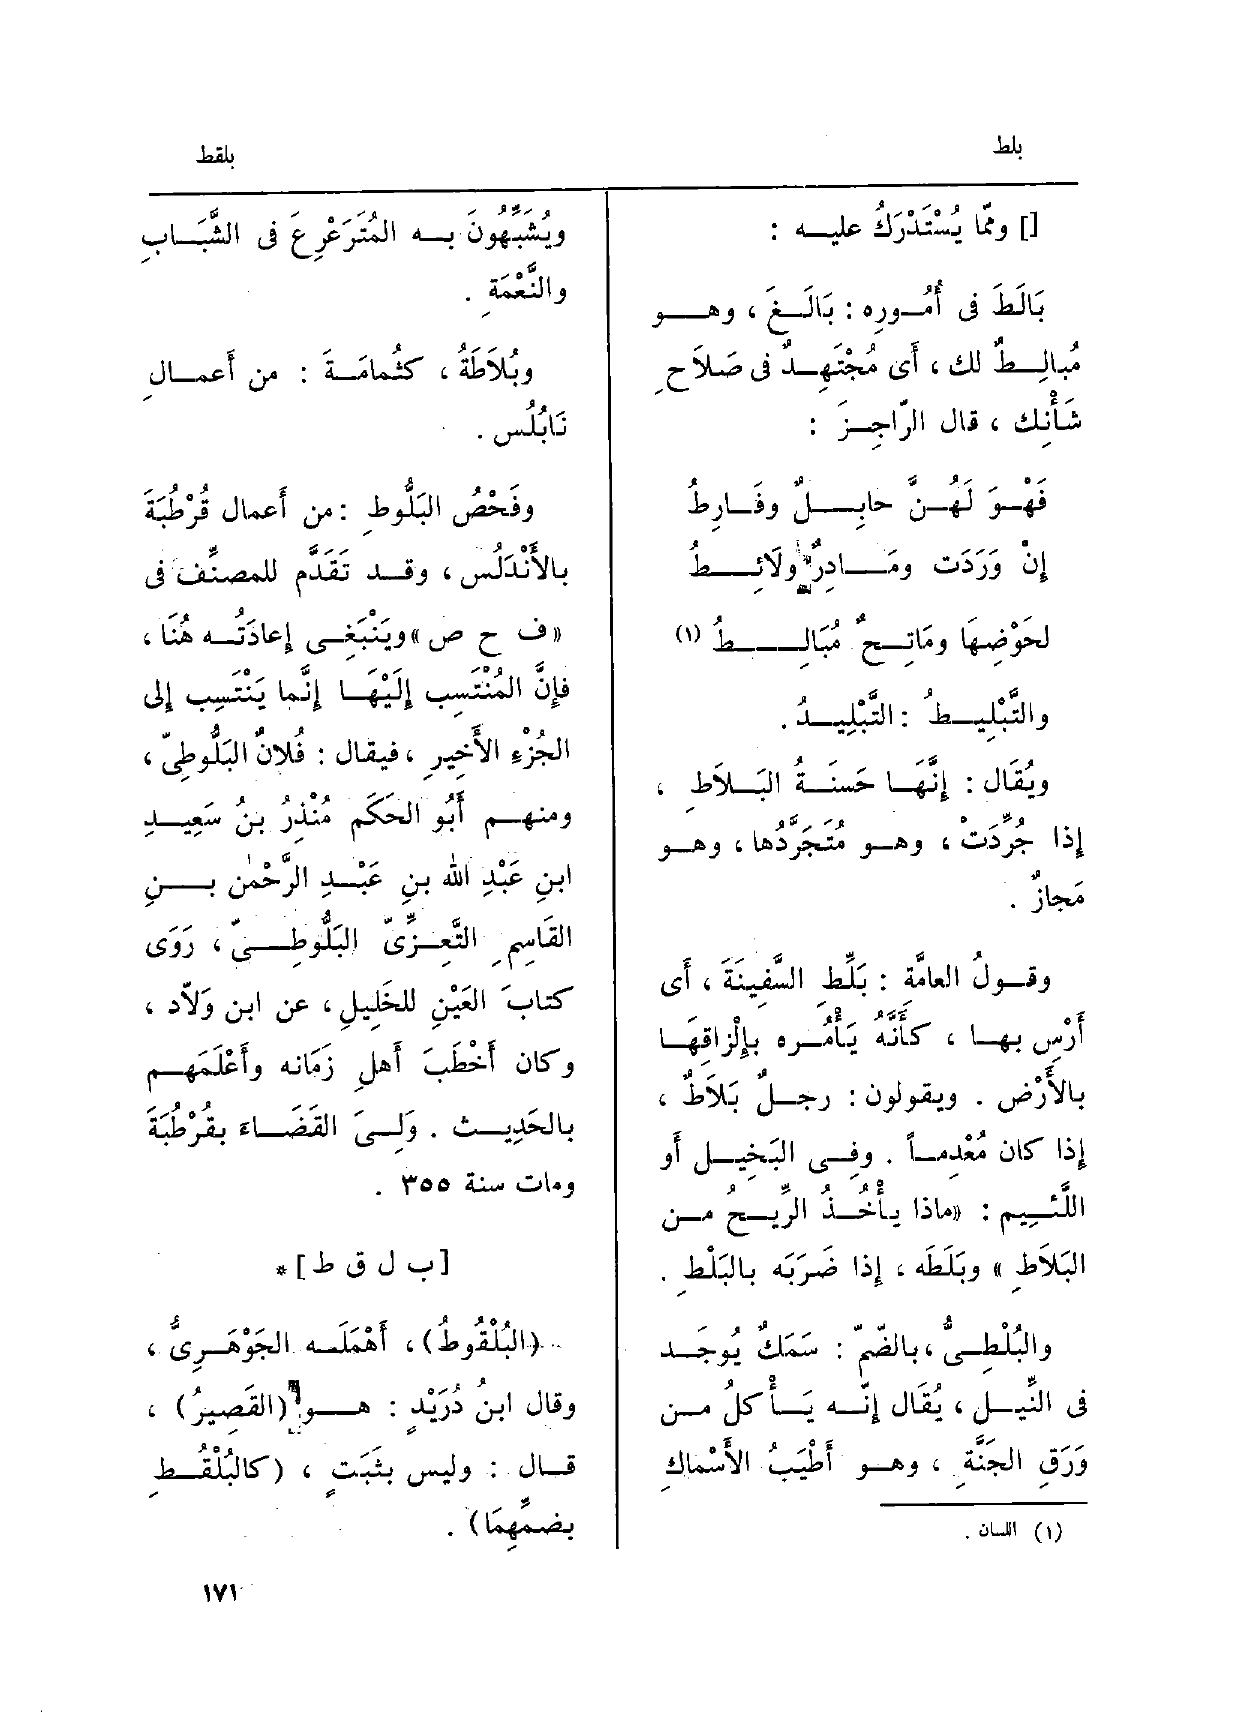 بلط
بلقط
[] وممّا يُسْتَدْرَكُ عليـه :
بَالَطَ فى أُمُـوره : بَالَـغَ ، وهـو
مُبالِـطٌ لك ، أَى مُجْتَهِـدٌ فى صَلاَحِ
شَأْنِك ، قال الرّاجِـزَ :
فَهْـوَ لَهُـنَّ حابِـلٌ وفَـارِطُ
إِنْ وَرَدَت ومَـادِرٌ ولَائِـطُ
لحَوْضِهَا ومَاتِـحٌ مُبَالِـطُ (١)
والتَّبْلِيـطُ : التَّبْلِيـدُ .
ويُقَال : إِنَّهَـا حَسَنَـةُ البَـلاَطِ ،
إِذا جُرِّدَتْ ، وهـو مُتَجَرَّدُها ، وهـو
مَجازٌ .
وقـولُ العامَّة : بَلِّط السَّفِينَةَ ، أَى
أَرْسِ بهـا ، كأَنَّهُ يَأْمُـره بإِلْزاقِهَـا
بالأَرْضِ . ويقولون : رجـلٌ بَلاَطٌ ،
إِذا كان مُعْدِمـاً . وفـى البَخِيـل أَو
اللَّئِيـم : «ماذا يـأْخُـذُ الرِّيـحُ مـن
البَلاَطِ » وبَلَطَه ، إِذا ضَرَبَه بالبَلْطِ .
والبُلْطِـىُّ ، بالضّمّ : سَمَكٌ يُوجَـد
فى النِّيـل ، يُقَال إِنّـه يَـأْكلُ مـن
وَرَقِ الجَنَّةِ ، وهـو أَطْيَبُ الأَسْماكِ
(١) اللسان .
ويُشَبِّهُونَ بـه المُتَرَعْرِعَ فى الشَّبَـابِ
والنَّعْمَةِ .
وبُلاَطَةُ ، كثُمامَـةَ : من أَعمـالِ
نَابُلُس .
وفَحْصُ البَلُّوطِ : من أَعمال قُرْطُبَةَ
بالأَنْدَلُسِ ، وقـد تَقَدَّم للمصنِّف فى
«ف ح ص» ويَنْبَغِـى إِعادَتُـه هُنَا ،
فإِنَّ المُنْتَسِب إِلَيْهَـا إِنَّما يَنْتَسِب إِلى
الجُزْءِ الأَخِيرِ ، فيقال : فُلانٌ البَلُّوطِىّ ،
ومنهـم أَبُو الحَكَم مُنْذِرُ بنُ سَعِيـدِ
ابنِ عَبْدِ الله بنِ عَبْـدِ الرَّحْمٰن بـنِ
القَاسِمِ التَّعِـزِّىّ البَلُّوطِـىّ ، رَوَى
كتابَ العَيْنِ للخَلِيلِ ، عن ابن وَلاّد ،
وكان أَخْطَبَ أَهلِ زَمَانه وأَعْلَمَهـم
بالحَدِيـث . وَلِـىَ القَضَـاءَ بقُرْطُبَةَ
ومات سنة ٣٥٥ .
[ب ل ق ط] *
(البُلْقُوطُ) ، أَهْمَلَـه الجَوْهَـرِىُّ ،
وقال ابنُ دُرَيْدٍ : هـو (القَصِيرُ) ،
قـال : وليس بثَبَتٍ ، (كالبُلْقُـطِ
بضمِّهِمَا) .
١٧١